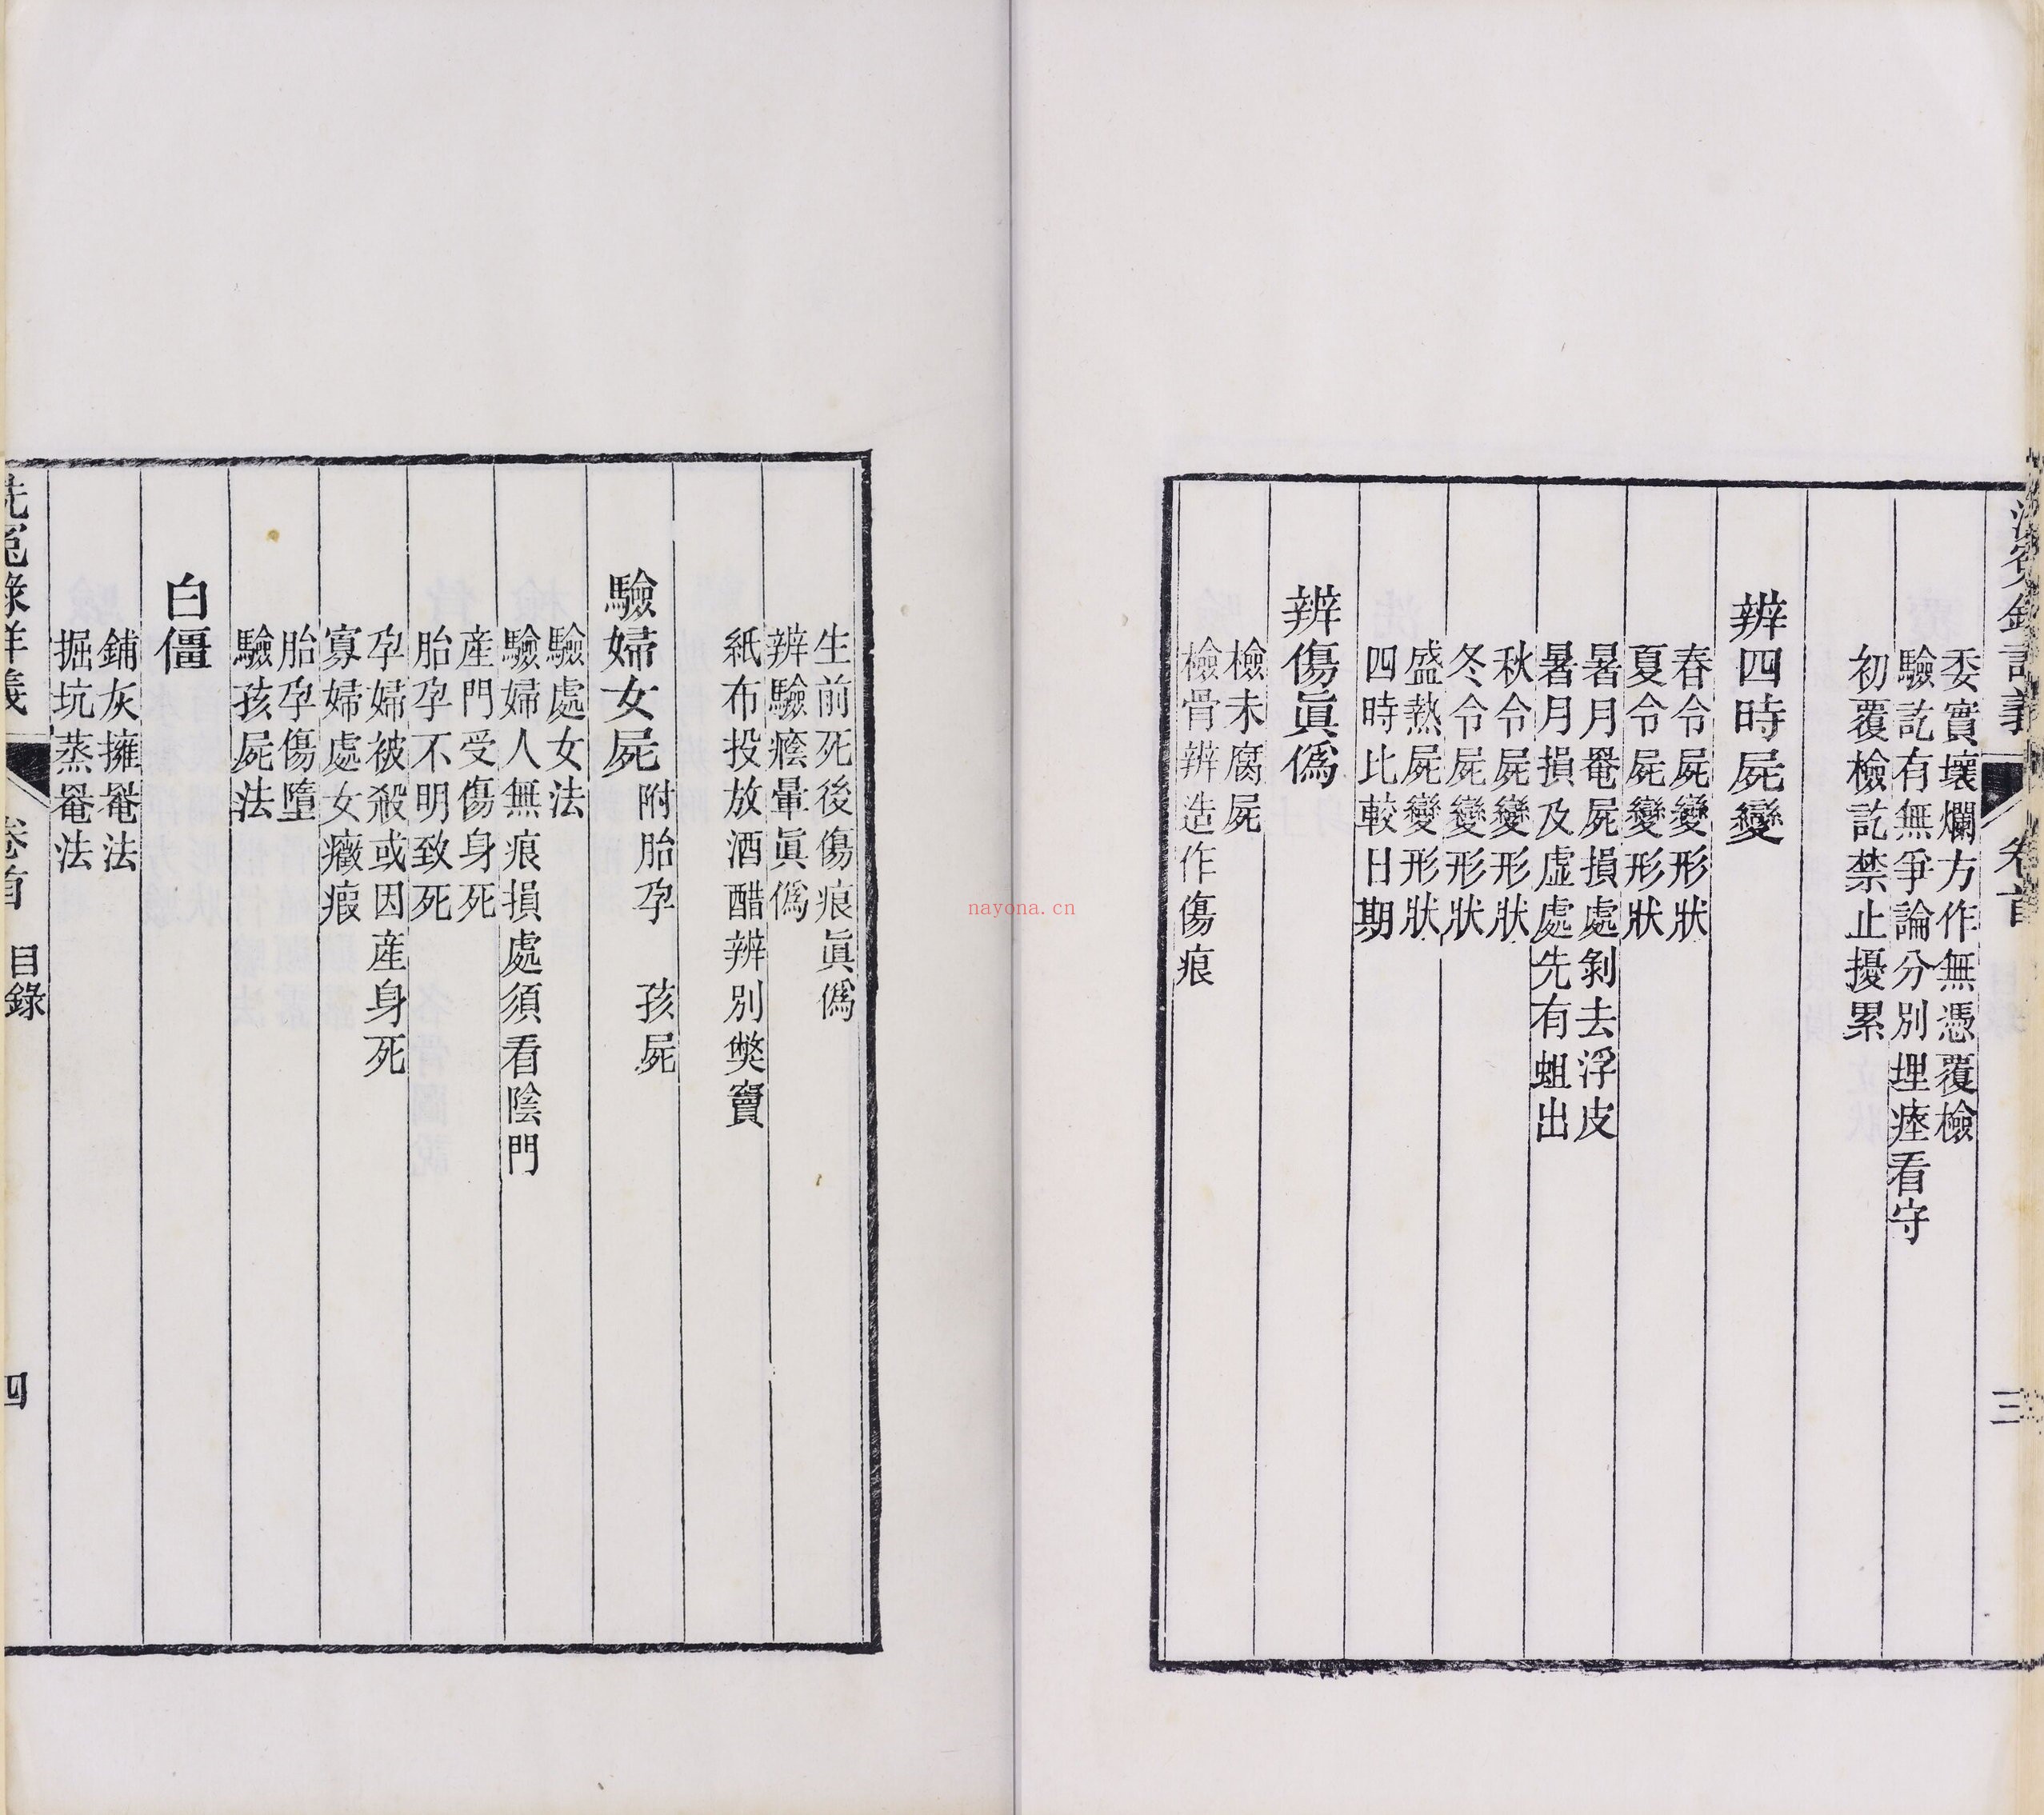 洗冤錄詳義 卷首 目錄 三
委實壞爛方作無憑覆檢
驗訖有無爭論分別埋瘞看守
初覆檢訖禁止擾累
辨四時屍變
春令屍變形狀
夏令屍變形狀
暑月罨屍損處剝去浮皮
暑月損及虛處先有蛆出
秋令屍變形狀
冬令屍變形狀
盛熱屍變形狀
四時比較日期
辨傷眞僞
檢未腐屍
檢骨辨造作傷痕
生前死後傷痕眞僞
辨驗癊暈眞僞
紙布投放酒醋辨別獘竇
驗婦女屍 附胎孕 孩屍
驗處女法
驗婦人無痕損處須看陰門
產門受傷身死
胎孕不明致死
孕婦被殺或因產身死
寡婦處女癥瘕
胎孕傷墮
驗孩屍法
白僵
鋪灰擁罨法
掘坑蒸罨法
洗冤錄詳義 卷首 目錄 四
nayona.cn